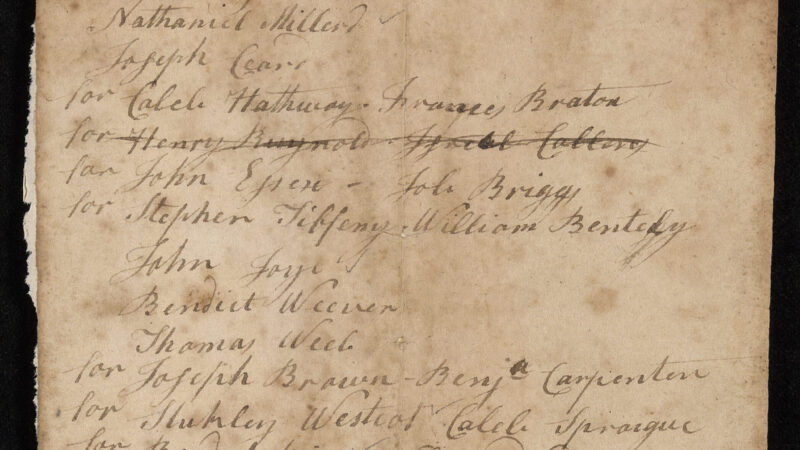 Nathaniel Millerd
Joseph
for Caleb Hathway - Frances Braton
for Henry Reynold - Collens
for John Essex - Job Briggs
for Stephen Tiffeny - William Bentely
John Joye
Bendict Weever
Thomas Weeb
for Joseph Brown - Benja Carpenter
for Stukley Westcot Caleb Sprague
for